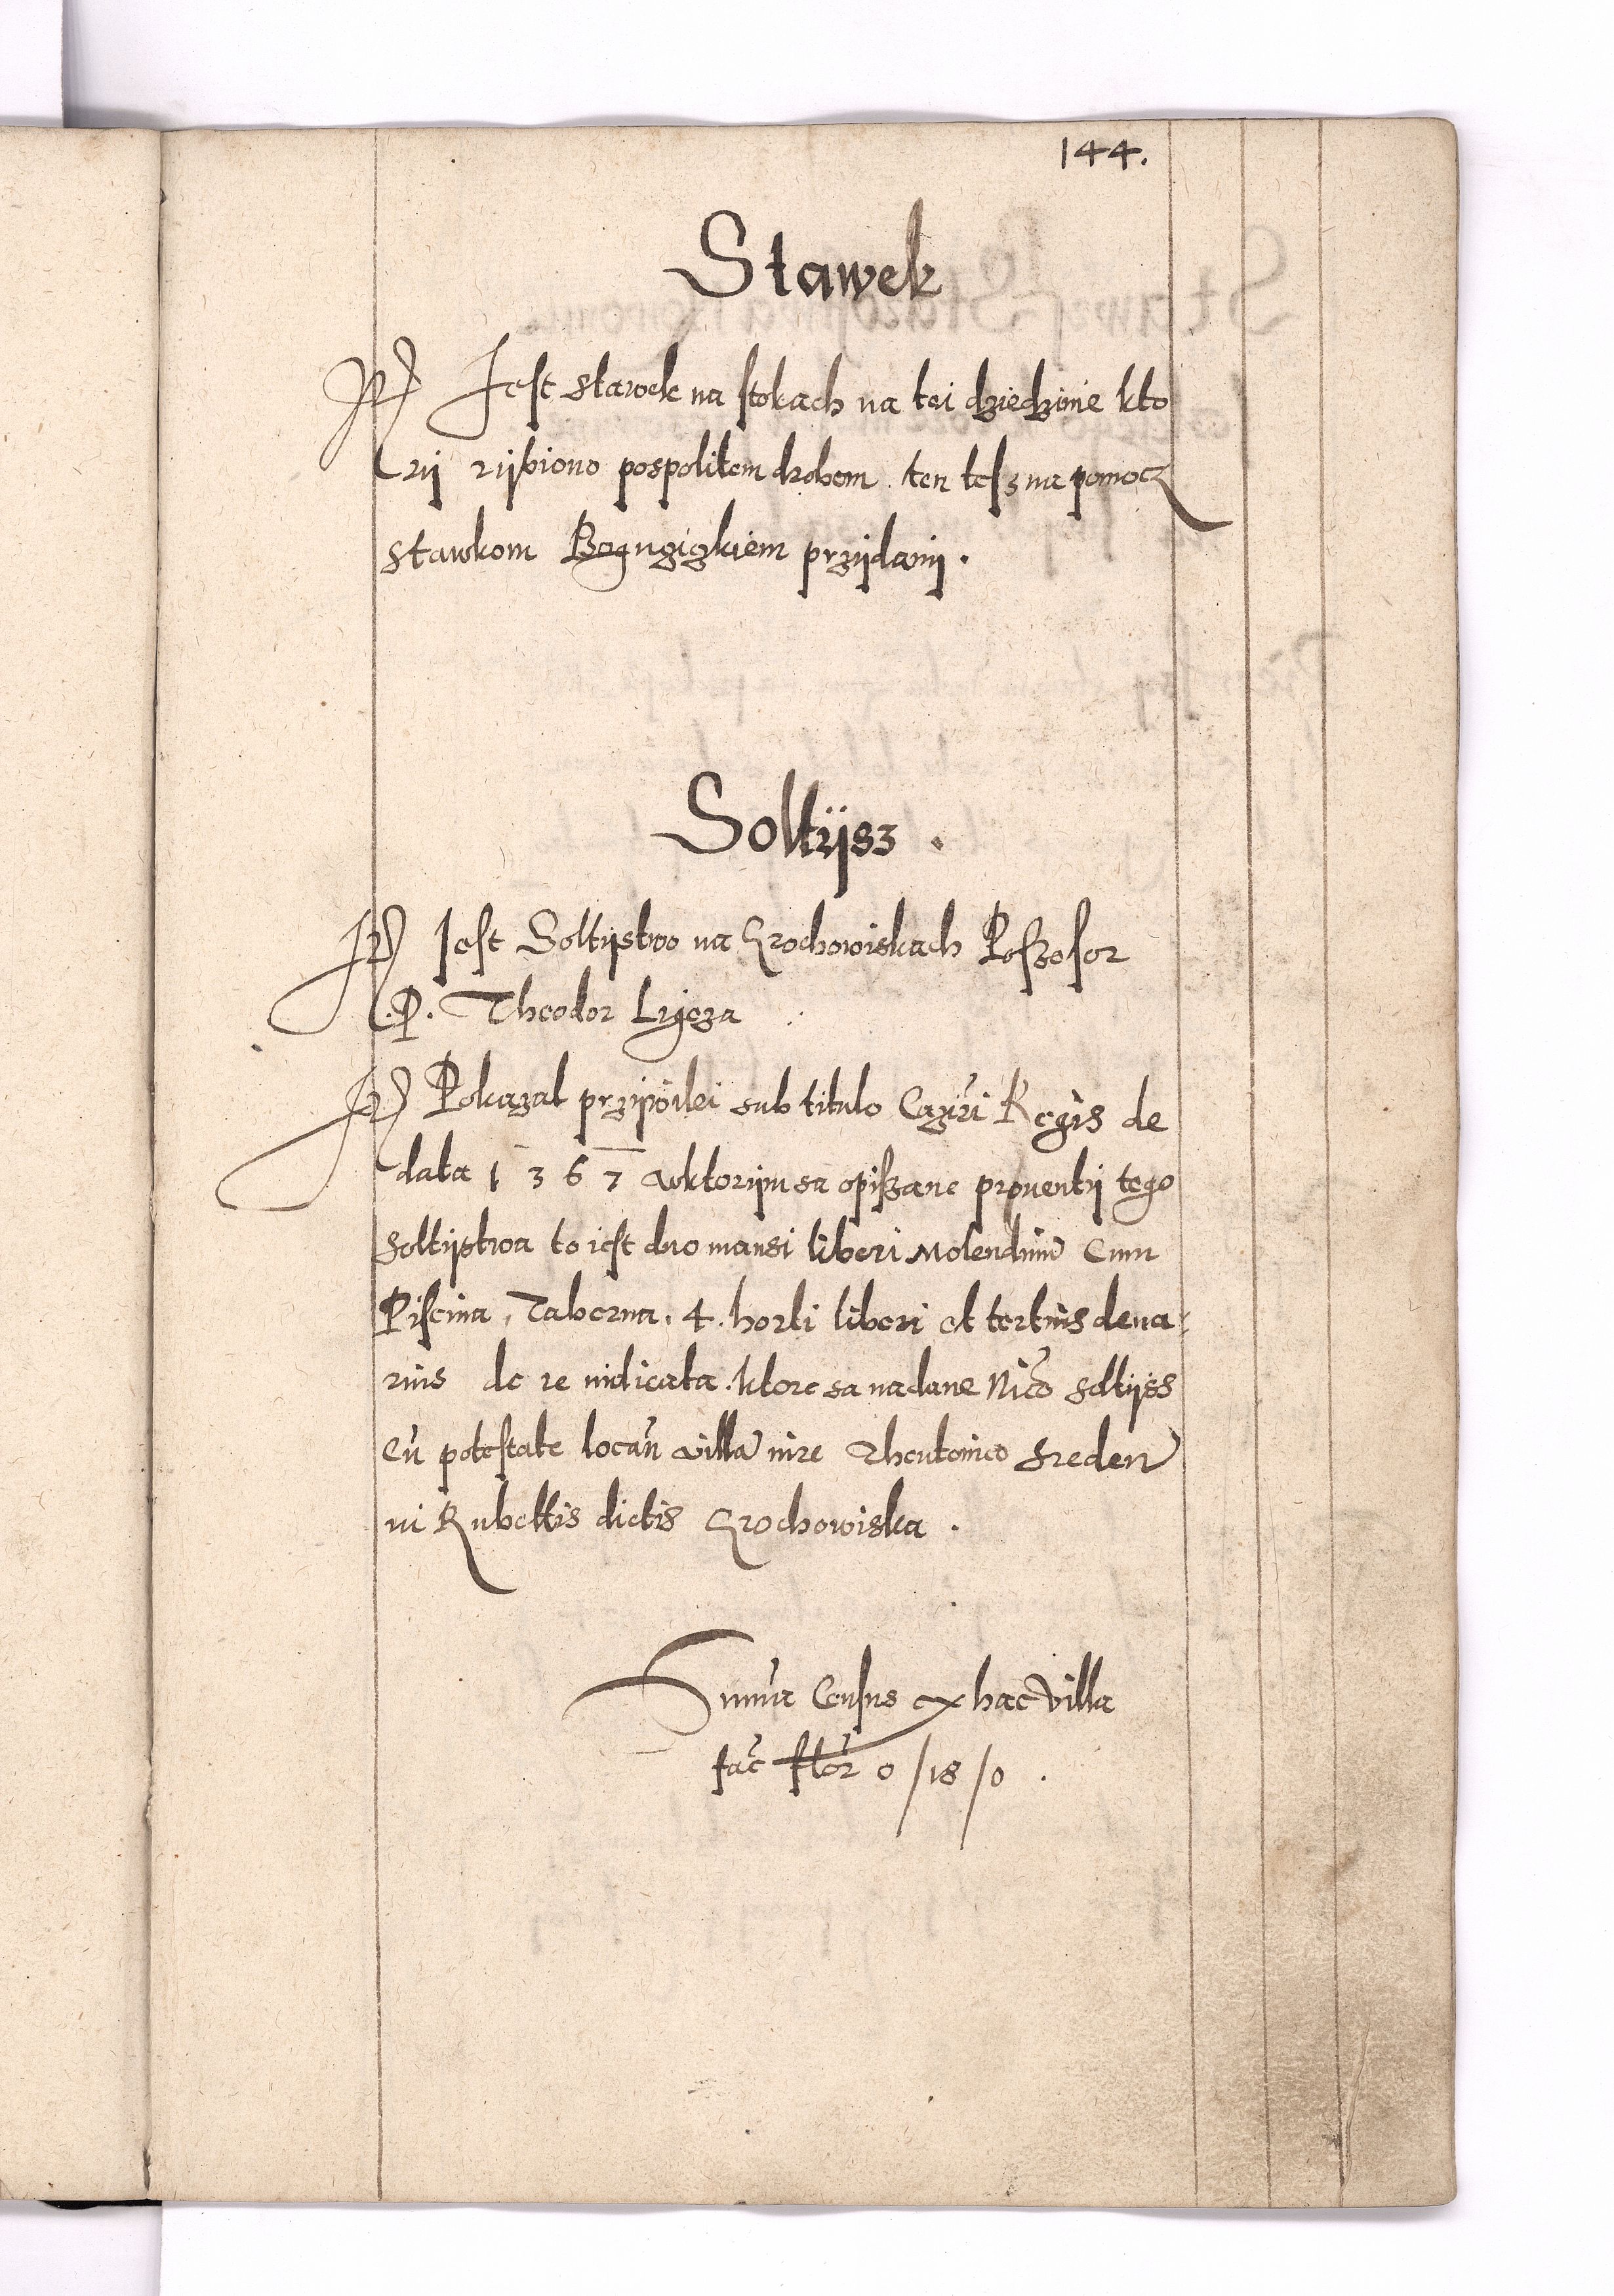 144.
Stawek
It Jest stawek na stokach na tei dziedzinie kto
rÿ rÿbiono pospolitem drobem. ten tesz na pomocz
stawkom Boguczickiem przÿdanÿ.
Soltÿsz.
It Jest Soltÿstwo na Grochowiskach Poszesor
.P. Theodor Lÿgeza
It Pokazal przÿwilei sub titulo Cazīri Regis de
data 1367 wktorÿm sa opiszane prouentÿ tego
soltÿstwa to iest duo mansi liberi Molendinū Cum
Piscina, Taberna, 4. horti liberi et tertius dena:
rius de re iudicata. ktore sa nadane Nico soltÿss
Cū potestate locan villā iure Theutonico sreden
in Rubettis dictis Grochowiska.
Suma Census ex hac Villa
fac flor 0/18/0.